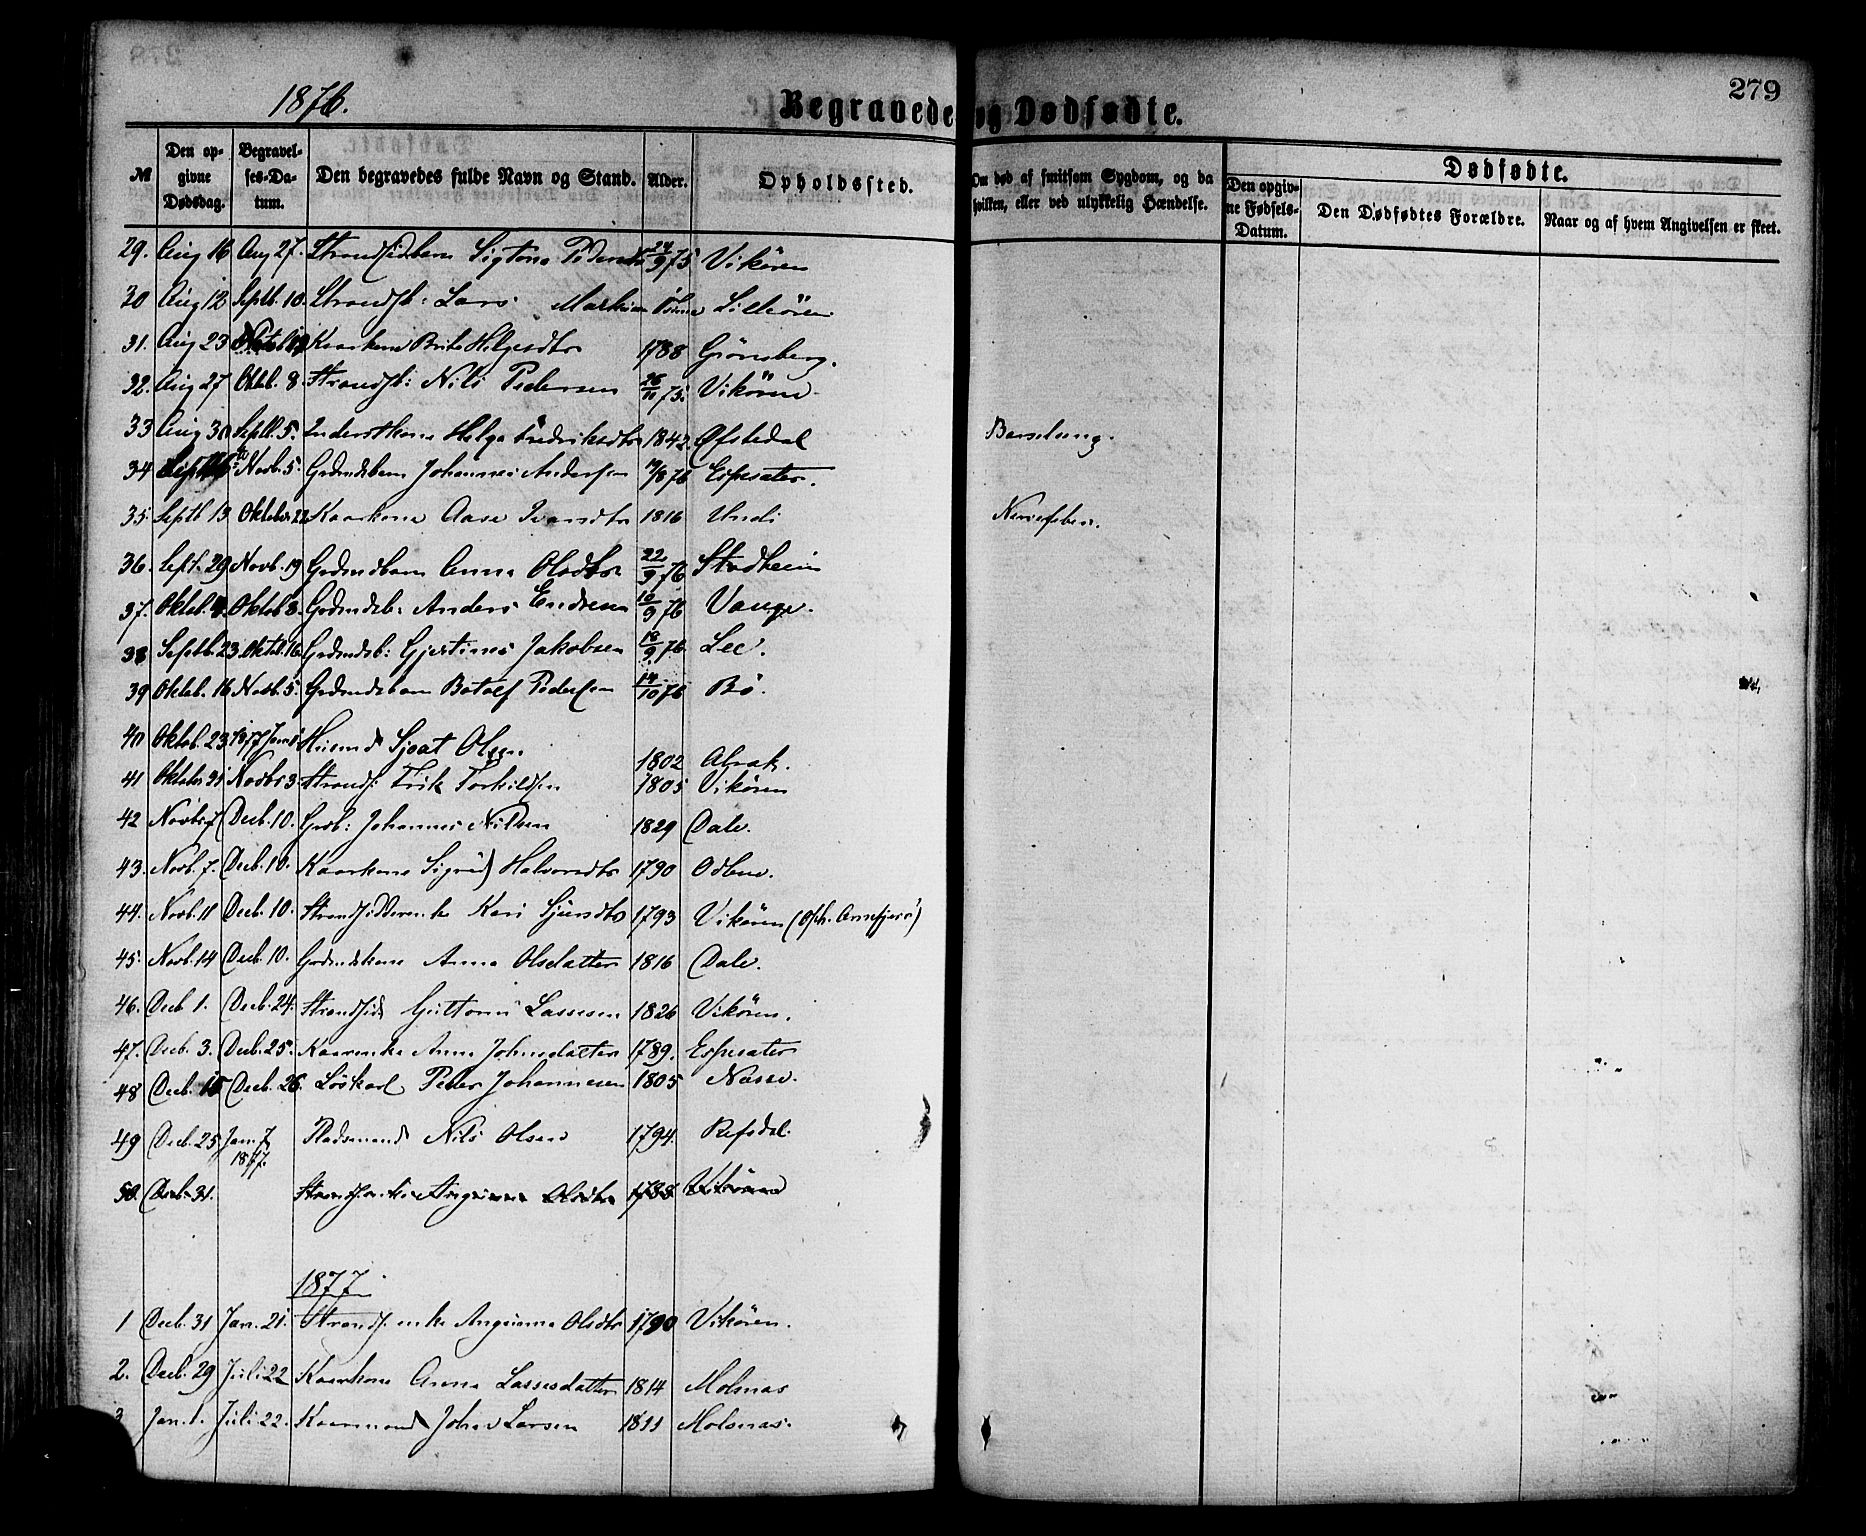 279
1876.
Begravede og Dødfødte.
№ Den opgivne Dødsdag. Begravelses-Datum. Den begravedes fulde Navn og Stand. Alder. Opholdssted. Om død af smitsom Sygdom, og da hvilken, eller ved ulykkelig Hændelse. Dødfødte.
Den opgivne Fødsels-Datum. Den Dødfødtes Forældre. Naar og af hvem Angivelsen er skeet.
29. Aug 16 Aug 27. Strandsidebarn 24/9 75 Vikören
30 Aug 12 Septb. 10. Strandsb: Lars
31. Aug 23 Kaarkone Brite Helgesdtr 1788 Grönsberg.
32. Aug 27 Oktb. 8 Strandsb: Nils Pedersen 26/11 75. Vikören
33 Aug 30 Septb. 5. Helga Fredriksdtr 1842 Ofstedal Barselseng.
34 Novb. 5. Grdmdsbarn Johannes Andersen 19/8 76 Espesæter.
35. Septb 13 Oktober 22 Kaarkone Aase Ivarsdtr 1816 Undi
36. Sept. 29 Novb. 19 Grdmdbarn Anna Olsdtr 22/9 76 Stadheim
37. Oktob. 4. Oktob 8. Grdmdsb: Anders Endresen 10/9 76 Vange.
38 Septb. 23 Oktob. 16 Grdmdsb: Gjertines Jakobsen 18/9 76 Lee.
39 Oktob. 16 Novb. 5. Grdmdsbarn Botolf Pedersen 14/10 76 Bö.
40 Oktob. 23 1877 Jan Husmd Sjoat Olsen 1802
41 Oktober 31 Novbr 3. Strands: Erik Torkildsen 1805 Vikören
42 Novbr 7 Decb. 10. Grdb: Johannes Nilsen 1829 Dale.
43. Novb. 7. Decb. 10. Kaarkone Sigrid Halvorsdtr 1790
44. Novb. 11 Decb. 10. Strandsidderenke Kari Sjursdtr 1793 Vikören
45. Novb. 14 Decb. 10. Grdmdskone Anna Olsdatter 1816 Dale.
46. Decb 1. Decb. 24. Strandsid Guttorm Lassesen 1826 Vikören.
47. Decb. 3. Decb. 25. Kaarenke Anna Johnsdatter 1789. Espesæter
48 Decb. 15 Decb. 26 Löskarl Peder Johannesen 1805 Nasse.
49 Decb. 25 Jan. 7 1877. Pladsmand Nils Olsen 1794. Refsdal.
50. Decb. 31. Strandsenke Angunna Olsdtr 1785 Vikören
1877
1 Decb. 31 Jan. 21. Strands: enke Angunna Olsdtr 1790 Vikören.
2. Decb. 29 Juli 22 Kaarkone Anna Lassesdatter 1814 Molsnas
3 Jan. 1. Juli 22. Kaarmand Johs Larsen 1811 Molsnas.